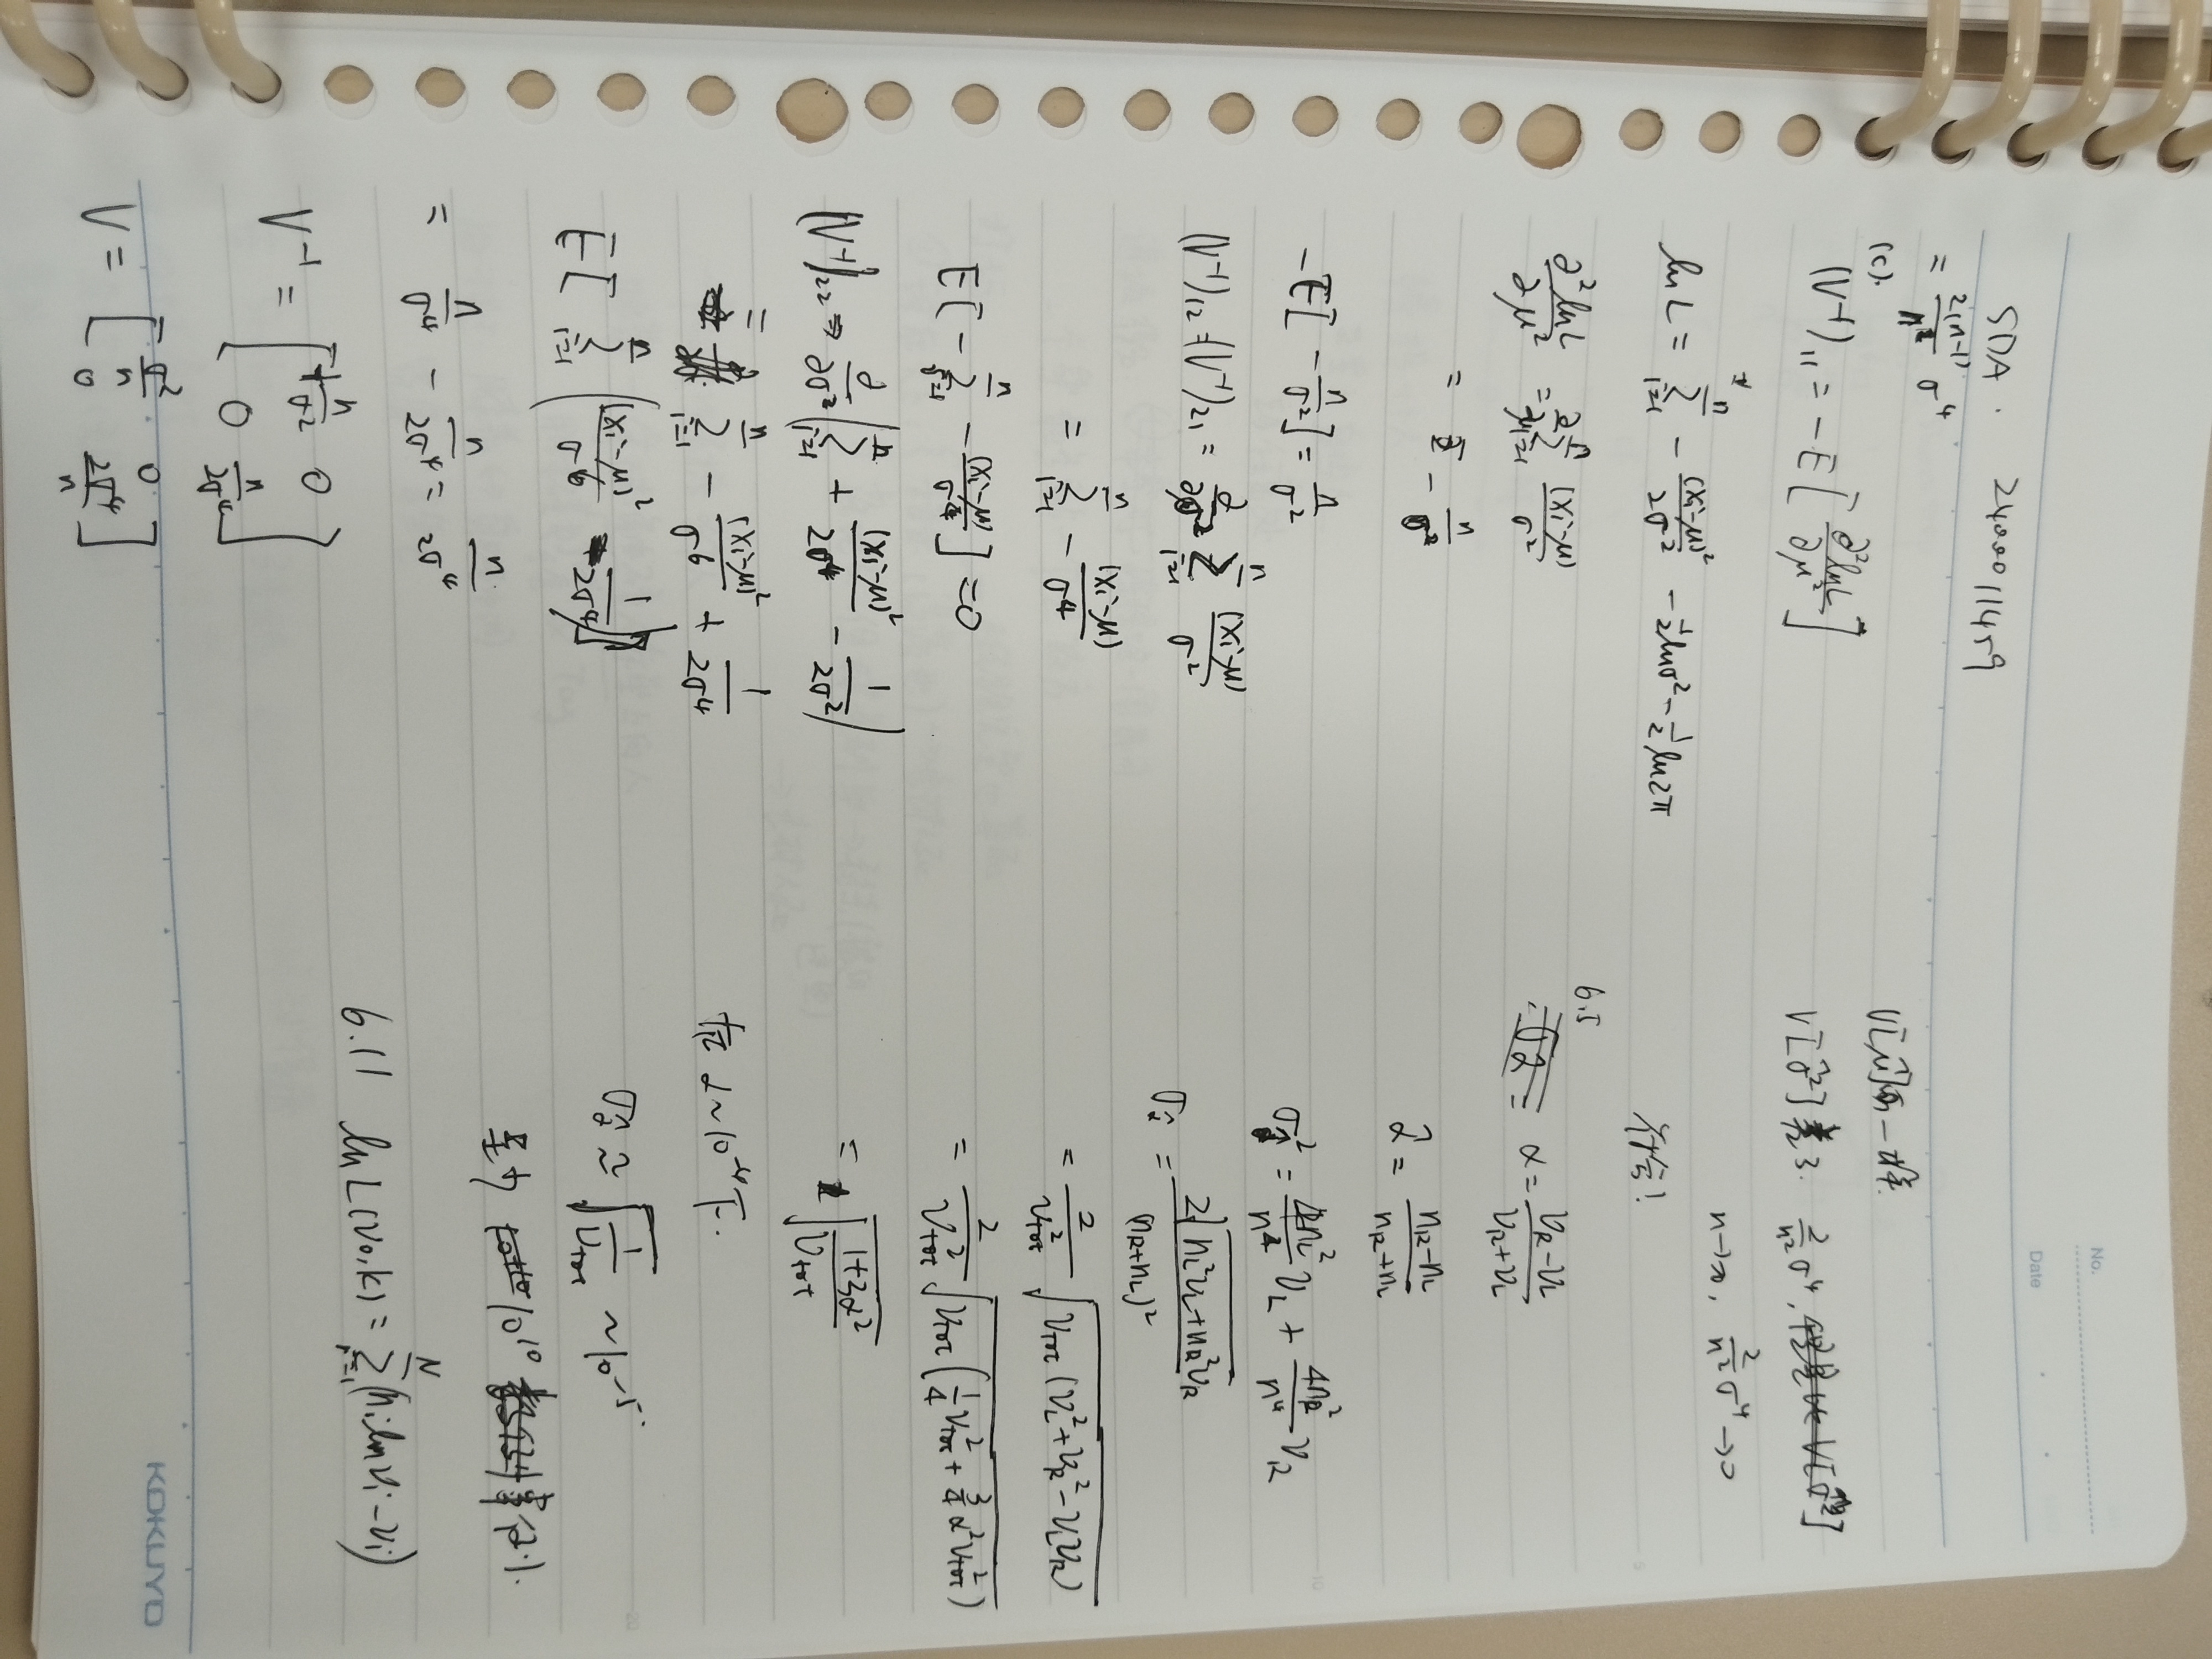 No.
Date
SDA. 2400011459
= \frac{2(n-1)}{n^2} σ^4
(c).
(V^{-1})_{11} = -E[\frac{∂^2 lnL}{∂μ^2}]
lnL = \sum_{i=1}^{n} -\frac{(x_i-μ)^2}{2σ^2} - \frac{1}{2}lnσ^2 - \frac{1}{2}ln2π
\frac{∂^2 lnL}{∂μ^2} = \frac{∂}{∂μ}\sum_{i=1}^{n} \frac{(x_i-μ)}{σ^2}
= -\frac{n}{σ^2}
-E[-\frac{n}{σ^2}] = \frac{n}{σ^2}
(V^{-1})_{12} = (V^{-1})_{21} = \frac{∂}{∂σ^2} \sum_{i=1}^{n} \frac{(x_i-μ)}{σ^2}
= \sum_{i=1}^{n} -\frac{(x_i-μ)}{σ^4}
E[-\sum_{i=1}^{n} -\frac{(x_i-μ)}{σ^4}] = 0
(V^{-1})_{22} ⇒ \frac{∂}{∂σ^2}(\sum_{i=1}^{n} + \frac{(x_i-μ)^2}{2σ^4} - \frac{1}{2σ^2})
= \sum_{i=1}^{n} -\frac{(x_i-μ)^2}{σ^6} + \frac{1}{2σ^4}
E[\sum_{i=1}^{n} (\frac{(x_i-μ)^2}{σ^6} - \frac{1}{2σ^4})]
= \frac{n}{σ^4} - \frac{n}{2σ^4} = \frac{n}{2σ^4}
V^{-1} = [\frac{n}{σ^2} 0
0 \frac{n}{2σ^4}]
V = [\frac{σ^2}{n} 0
0 \frac{2σ^4}{n}]
V[\hat{μ}] 一样.
V[\hat{σ^2}] 差了. \frac{2}{n^2}σ^4,
n→∞, \frac{2}{n^2}σ^4 → 0
符合!
6.5
α = \frac{ν_R-ν_L}{ν_R+ν_L}
\hat{α} = \frac{n_R-n_L}{n_R+n_L}
σ_{\hat{α}}^2 = \frac{4n_L^2}{n^4} ν_L + \frac{4n_R^2}{n^4} ν_R
σ_{\hat{α}} = \frac{2\sqrt{n_L^2ν_L+n_R^2ν_R}}{(n_R+n_L)^2}
= \frac{2}{ν_{tot}^2} \sqrt{ν_{tot}(ν_L^2+ν_R^2-ν_Lν_R)}
= \frac{2}{ν_{tot}^2} \sqrt{ν_{tot}(\frac{1}{4}ν_{tot}^2+\frac{3}{4}α^2ν_{tot}^2)}
= \sqrt{\frac{1+3α^2}{ν_{tot}}}
在 α~10^{-4}下.
σ_{\hat{α}} ≈ \sqrt{\frac{1}{ν_{tot}}} ~10^{-5}.
至少 10^{10}
6.11 lnL(ν_0,k) = \sum_{i=1}^{N}(n_i lnν_i - ν_i)
KOKUYO